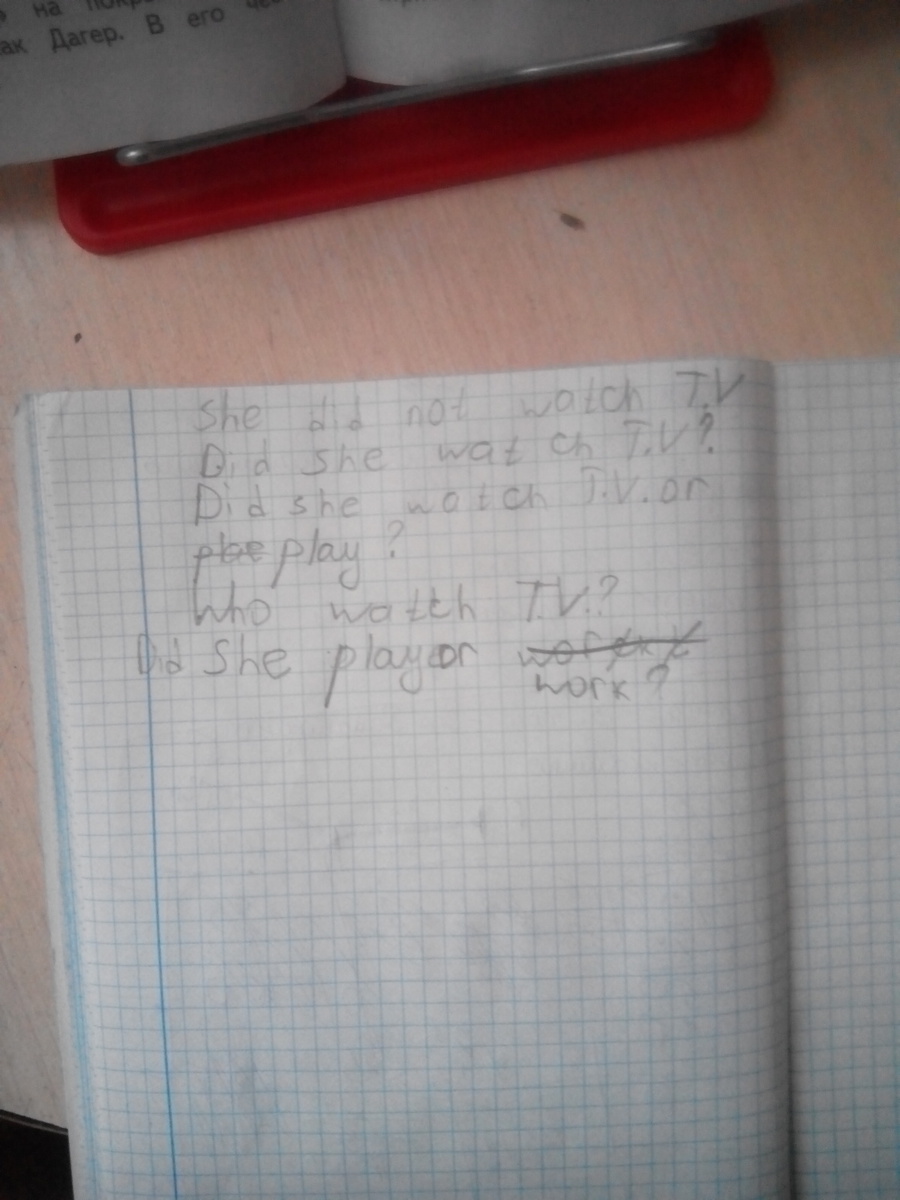 на
ак Дагер. В его
She did not watch T.V
Did she watch T.V?
Did she watch T.V. or
play?
Who watch T.V.?
Did She play or
work?